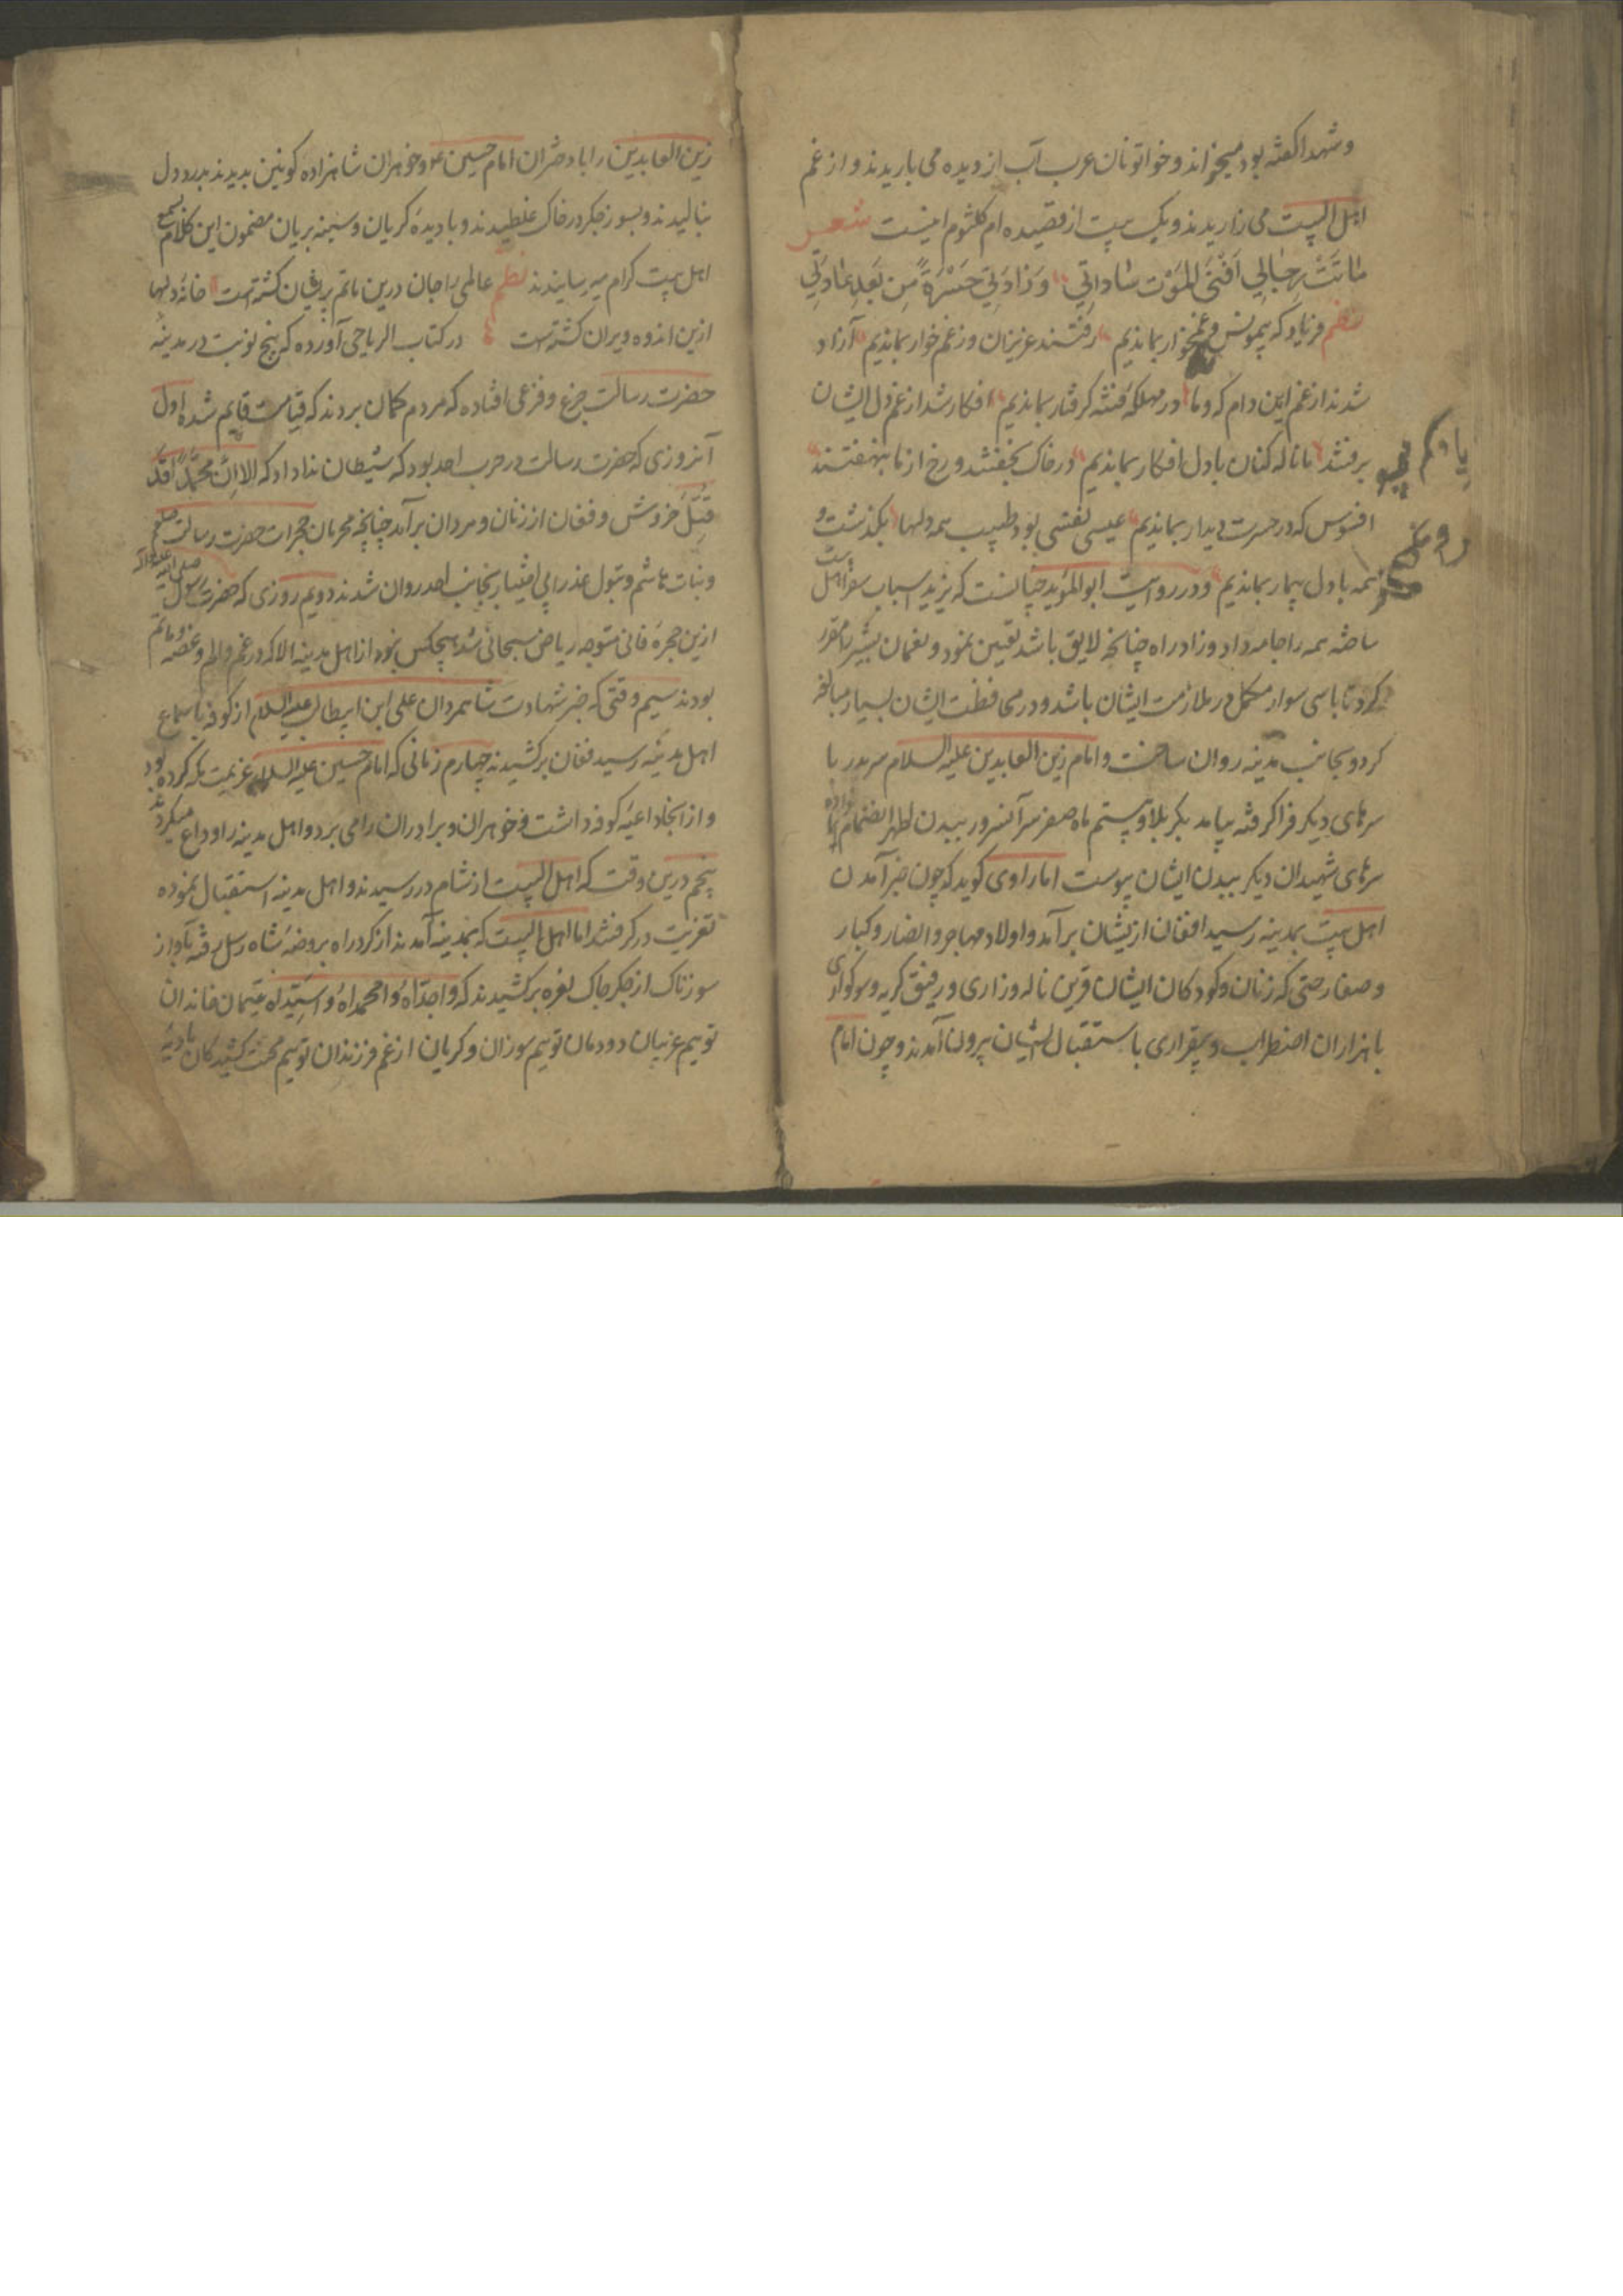 وشهدا کفته بود میخواند و خواتونان عرب آب از دیده می باریدند و از غم
اهل البیت می زاریدند و یک بیت از قصیده ام کلثوم اینست شعر
ماتت رجالی افنی الموت ساداتی وزادنی حسرة من بعد عاداتی
نظم فریاد که بیمونس و غمخوار بماندیم رفتند عزیزان و ز غم خوار بماندیم آزاد
شدند از غم این دام که و ما در مهلکه فتنه کرفتار بماندیم افکار شد از غم دل ایشان
برفتند با ناله کنان با دل افکار بماندیم در خاک بخفتند و رخ از ما بنهفتند
افسوس که در حسرت دیدار بماندیم عیسی نفسی بود طبیب همه دلها بکذشت و
همه با دل بیمار بماندیم و در روایت ابو المؤید چنانست که یزید اسباب سفر اهل بیت
ساخته همه را جامه داد و زاد راه چنانچه لایق باشد تعیین نمود و نعمان بشیر را مقرر
کرد تا با سی سوار مکمل در ملازمت ایشان باشد و در محافظت ایشان بسیار مبالغه
کرد و بجانب مدینه روان ساخت و امام زین العابدین علیه السلام سر پدر با
سرهای دیکر فرا کرفته بیامد بکربلا و بیستم ماه صفر سر آنسرور ببدن اطهر انضمام داده
سرهای شهیدان دیکر ببدن ایشان پیوست اما راوی کوید که چون خبر آمدن
اهل بیت بمدینه رسید افغان ازیشان برآمد و اولاد مهاجر و انصار و کبار
و صغار حتی که زنان و کودکان ایشان قرین ناله و زاری و رفیق کریه و سوکواری
با هزاران اضطراب و بیقراری باستقبال ایشان بیرون آمدند و چون امام
یا
زین العابدین را با دختران امام حسین ع و خواهران شاهزاده کونین بدیدند بدرد دل
بنالیدند و بسوز جکر در خاک غلطیدند و با دیده کریان و سینه بریان مضمون این کلام بسمع
اهل بیت کرام میرسانیدند نظم عالمی را جان درین ماتم پریشان کشته است خانه دلها
ازین اندوه ویران کشته است در کتاب الریاحی آورده که پنج نوبت در مدینه
حضرت رسالت جزع و فزعی افتاده که مردم کمان بردند که قیامت قایم شده اول
آنروزی که حضرت رسالت در حرب احد بود که شیطان ندا داد که الا ان محمدا قد
قتل خروش و فغان از زنان و مردان برآمد چنانچه محرمان حجرات حضرت رسالت صلعم
و بنات هاشم و بتول عذرا بی اختیار بجانب احد روان شدند دویم روزی که حضرت رسول صلی الله علیه و آله
ازین حجره فانی متوجه ریاض سبحانی شد هیچکس نبود از اهل مدینه الا که در غم و الم و غصه و ماتم
بودند سیم وقتی که خبر شهادت شاهمردان علی ابن ابیطالب علیه السلام از کوفه باسماع
اهل مدینه رسید فغان برکشیدند چهارم زمانی که امام حسین علیه السلام عزیمت مکه کرده بود
و از آنجا داعیه کوفه داشت و خواهران و برادران را می برد و اهل مدینه را وداع میکردند
پنجم درین وقت که اهل البیت از شام در رسیدند و اهل مدینه استقبال نموده
تعزیت در کرفتند اما اهل البیت که بمدینه آمدند از کرد راه بروضه شاه رسل رفته بآواز
سوزناک از جکر چاک نعره برکشیدند که واجداه وامحمداه واسیداه یتیمان خاندان
توییم غریبان دودمان توییم سوزان و کریان از غم فرزندان توییم محنت کشیدکان بادیه